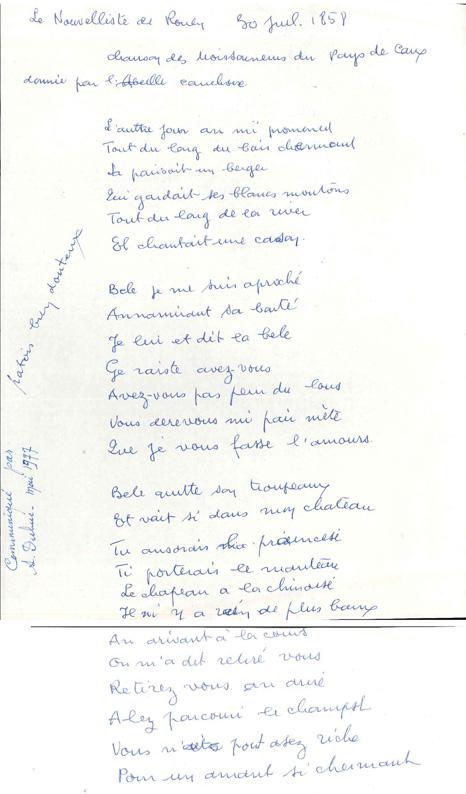 Le Nouvelliste de Rouen 30 Juil. 1858
chanson des moissonneurs du Pays de Caux
donnée par l'Abeille cauchoise
L'autre jour an mi promened
Tout du long du bois charmant
La paisoit un berger
Qui gardait ses blancs moutons
Tout du long de la river
Et chantait une casoy.
Bele je me suis aproché
Annamirant sa bauté
Je lui et dit la bele
Ge raiste avez-vous
Avez-vous pas peur du lous
Vous derevous mi pair mète
Que je vous fasse l'amours
Bele quitte soy troupeaux
Et vait si dans moy chateau
Tu ansorais princesi
Ti porterais le manteau
Le chapeau a la chinoisé
Je ni y a de plus baux
An arivant à la cours
On m'a dit retiré vous
Retirez vous an drué
Alez parcouri le champst
Vous n' pout asez riche
Pour un amant si chermant
patois bien douteux
Communiqué par
A. Dubuc. mai 1977